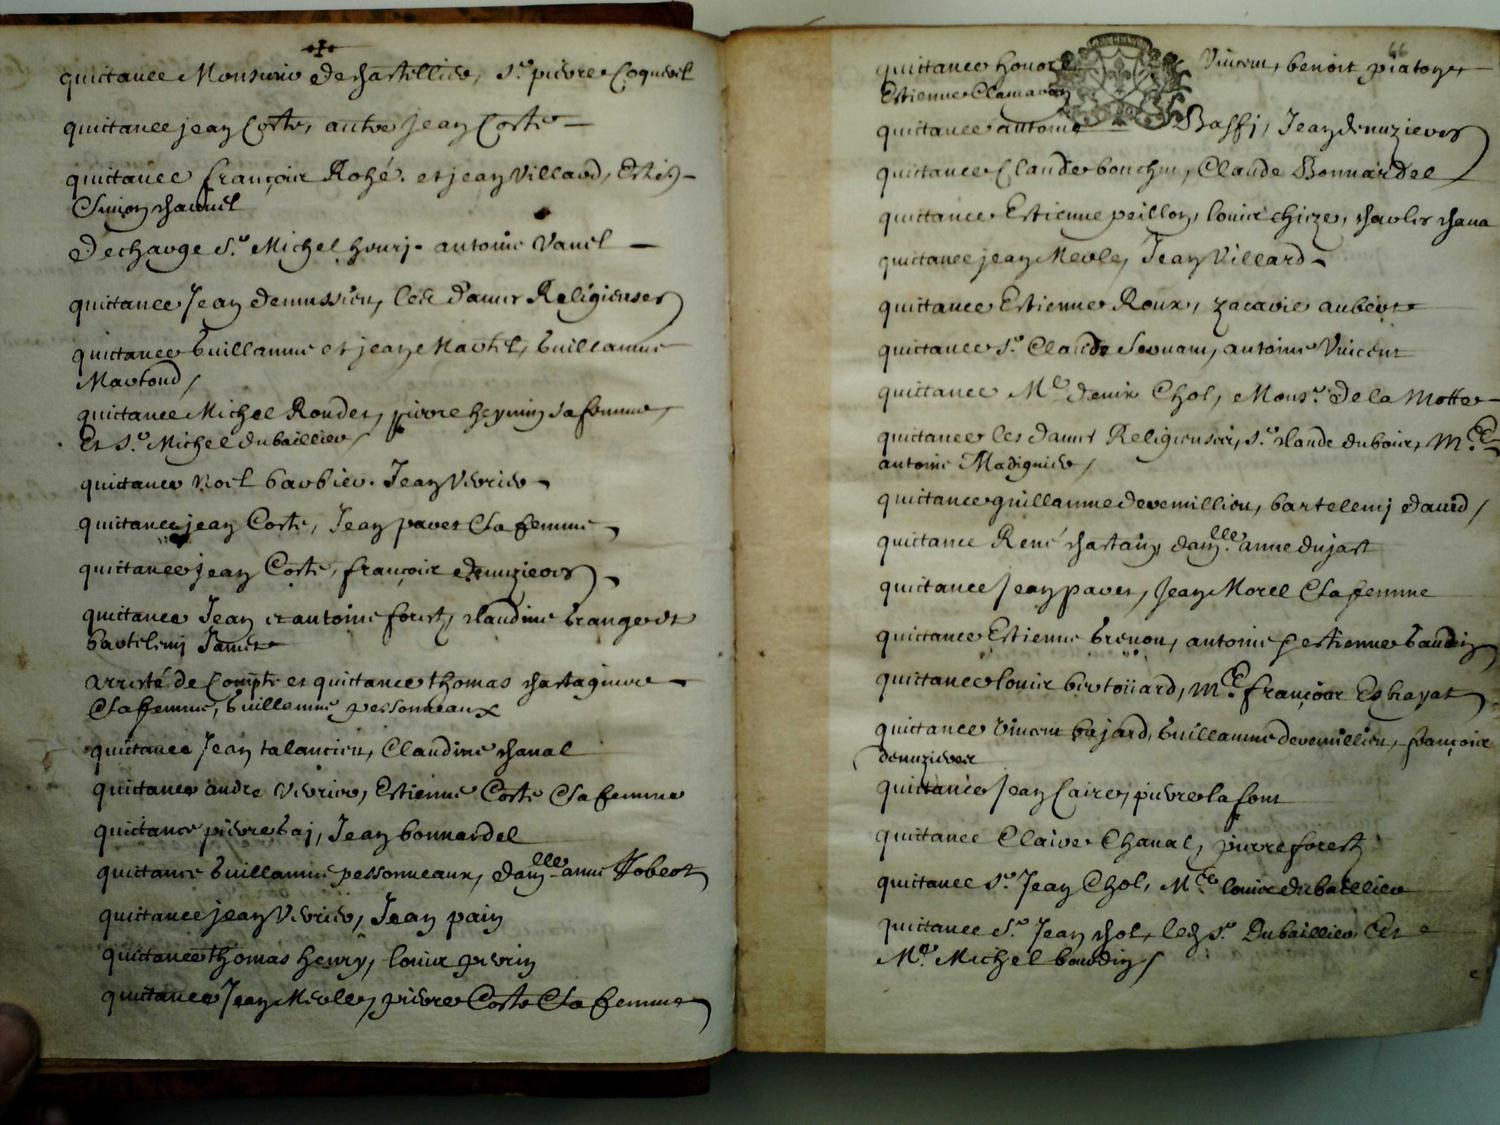 quittance Monsieur de chastellier, s.r pierre Coquevil
quittance jean Coste, autre jean Coste
quittance françois Rozé. et jean Villard, Est
Simon chanuel
Decharge s.r Michel henrj. antoine Vanel
quittance Jean demussieu, les dames Religieuses
quittance Guillaume et jean Martel, Guillaume
Martoud
quittance Michel Rondet, pierre heymin sa femme,
Et s.r Michel dubaillier
quittance Noel barbier. Jean Verrier
quittance jean Coste, Jean pavet Et sa femme
quittance jean Coste, françois deuuzieres
quittance Jean et antoine forest, claudine
bartelemj
arresté de Compte et quittance thomas chastagniere
Et sa femme, Guillaume pessonneaux
quittance Jean talancieu, Claudine chanal
quittance andre Verrier, Estienne Coste Et sa femme
quittance pierre baj, Jean bonnardel
quittance Guillaume pessonneaux, dam.lle anne Jobert
quittance jean Verrier, Jean pain
quittance thomas henry, louis perrin
quittance Jean Merle, pierre Coste Et sa femme
66
quittance honor Vincent, benoit piaton
Estienne Clamaron
quittance antoine Bassj, Jean deuuzieres
quittance Claude bouchu, Claude Bonnardel
quittance Estienne peillon, louis chieze, charles chana
quittance jean Merle, Jean Villard
quittance Estienne Roux, zacarie aubert
quittance s.r Claude Servant, antoine Vincent
quittance M.e denis Chol, Mons.r De la Motte
quittance les dames Religieuses, s.r claude dubois, M.e
antoine Madignier
quittance guillaume devernillieu, bartelemj david
quittance René chastain dam.lle anne dujast
quittance Jean pavet, Jean Morel Et sa femme
quittance Estienne Grenon, antoine et estienne baudin
quittance louis bertoüard, M.e françois Eshayat
quittance Vincent bajard, Guillaume devernillieu, françois
deuuzieres
quittance Jean Caire, pierre lafont
quittance Claire Chanal, pierre forest
quittance s.r Jean Chol, M.e louis dubaillier
quittance s.r Jean chol, led. s.r Dubaillier Et
M.e Michel boudin